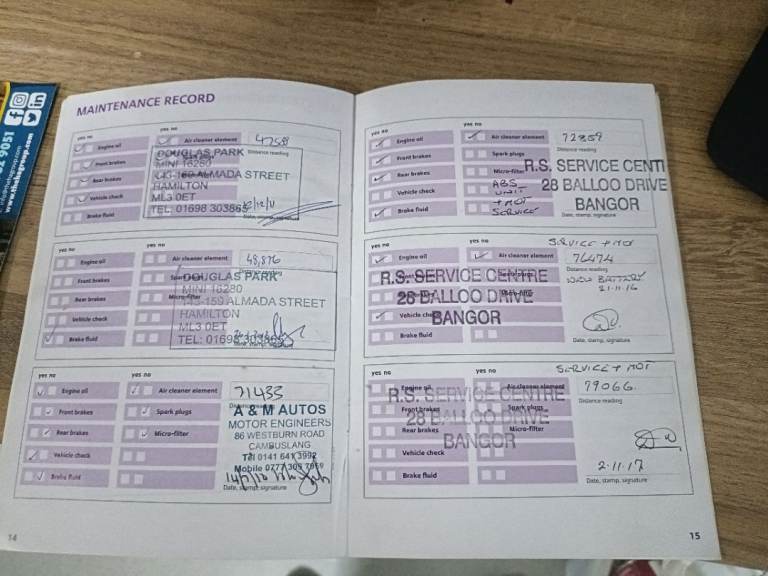 MAINTENANCE RECORD
yes no
yes no
Engine oil
Air cleaner element
47588
Front brakes
Spark plugs
Distance reading
Rear brakes
Vehicle check
Brake fluid
DOUGLAS PARK
MINI 16280
143-159 ALMADA STREET
HAMILTON
ML3 0ET
TEL: 01698 303865
yes no
yes no
Engine oil
Air cleaner element
48,876
Front brakes
Rear brakes
Micro-filter
Vehicle check
Brake fluid
DOUGLAS PARK
MINI 16280
143-159 ALMADA STREET
HAMILTON
ML3 0ET
TEL: 01698 303865
yes no
yes no
Engine oil
Air cleaner element
71433
Front brakes
Spark plugs
Rear brakes
Micro-filter
Vehicle check
Brake fluid
A & M AUTOS
MOTOR ENGINEERS
86 WESTBURN ROAD
CAMBUSLANG
Tel 0141 641 3992
Date, stamp, signature
14
yes no
yes no
Engine oil
Air cleaner element
72859
Front brakes
Spark plugs
Distance reading
Rear brakes
Micro-filter
Vehicle check
ABS
UNIT
Brake fluid
+ MOT
SERVICE
Date, stamp, signature
R.S. SERVICE CENTI
28 BALLOO DRIVE
BANGOR
SERVICE + MOT
yes no
yes no
Engine oil
Air cleaner element
76474
Distance reading
NEW BATTERY
21.11.16
Vehicle check
Brake fluid
Date, stamp, signature
R.S. SERVICE CENTRE
28 BALLOO DRIVE
BANGOR
SERVICE + MOT
yes no
yes no
Engine oil
Air cleaner element
79066
Front brakes
Spark plugs
Distance reading
Rear brakes
Micro-filter
Vehicle check
Brake fluid
2.11.17
Date, stamp, signature
R.S. SERVICE CENTRE
28 BALLOO DRIVE
BANGOR
15